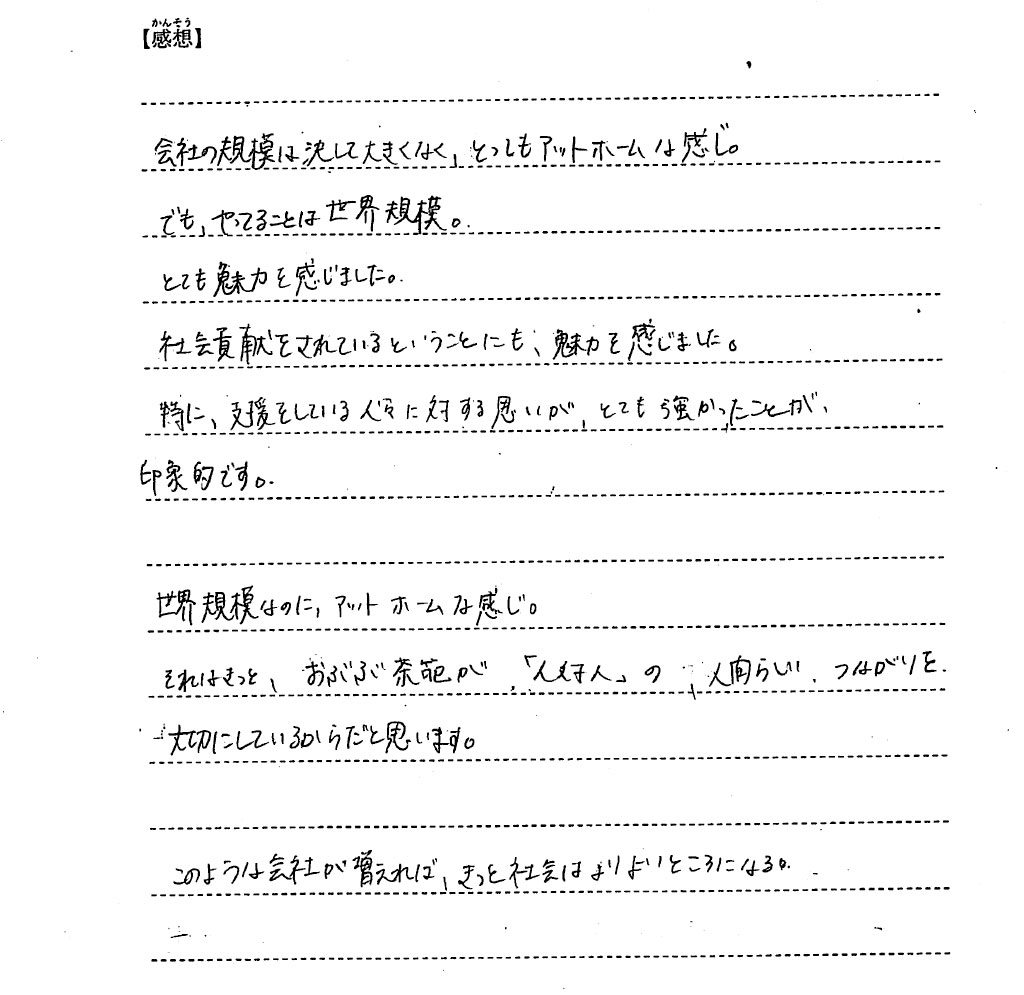 【感想】
かんそう
会社の規模は決して大きくなく、とってもアットホームな感じ。
でも、やってることは世界規模。
とても魅力を感じました。
社会貢献をされているということにも、魅力を感じました。
特に、支援をしている人々に対する思いが、とても強かったことが、
印象的です。
世界規模なのに、アットホームな感じ。
それはきっと、おぶぶ茶苑が、「人対人」の、人間らしい、つながりを
大切にしているからだと思います。
このような会社が増えれば、きっと社会はよりよいところになる。